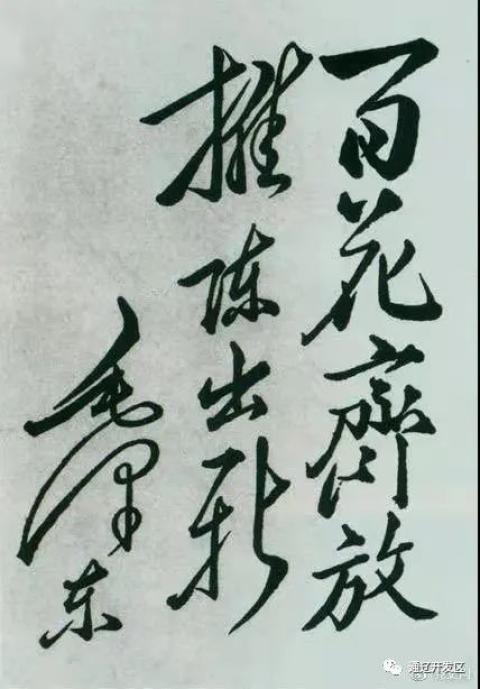 百花齊放
推陈出新
毛泽东
通辽开发区